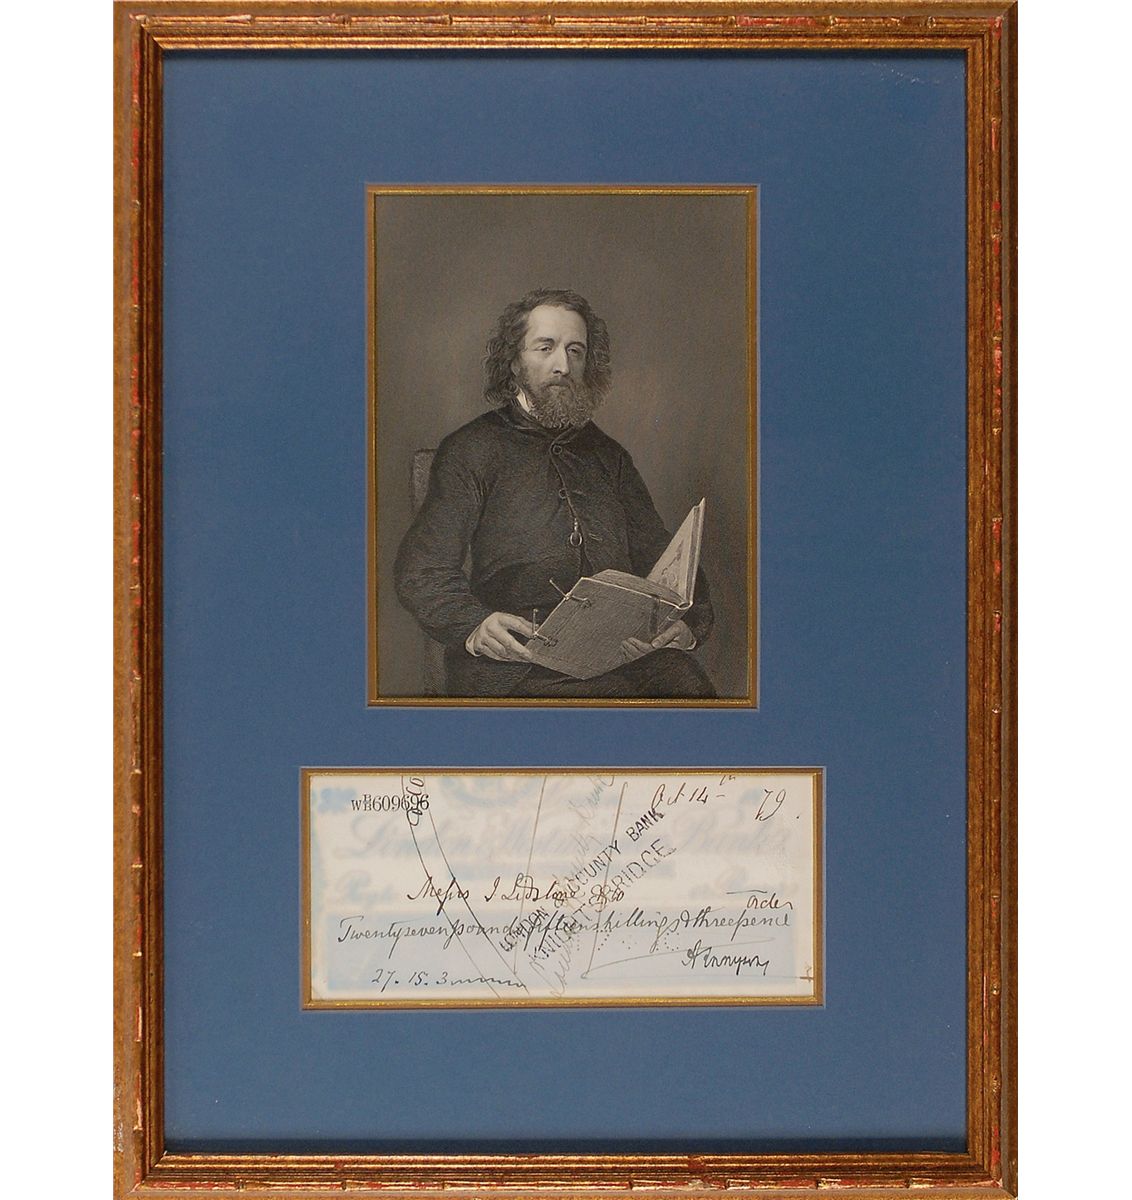 WH609696
Oct 14th 79.
London & Westminster Bank
Messrs J Lidstone & Co
Order
Twentyseven pounds fifteen shillings & threepence
ATennyson
27. 15. 3
LONDON & COUNTY BANK
KNIGHTSBRIDGE
& Co